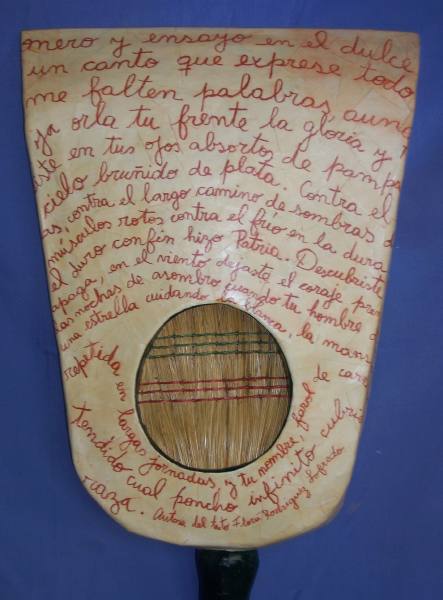 omero y ensayo en el dulce
un canto que exprese todo
me falten palabras, aunq
ya orla tu frente la gloria y
iste en tus ojos absortos de pampa
cielo bruñido de plata. Contra el
as, contra el largo camino de sombras d
músculos rotos contra el frío en la dura
el duro confín hizo Patria. Descubriste
apaga, en el viento dejaste el coraje pren
las noches de asombro cuando tu hombre d
una estrella cuidando la blanca, la mans
repetida en largas jornadas, y tu nombre, farol de care
tendido cual poncho infinito cubrió
raza. Autora del texto Flora Rodriguez Lofredo